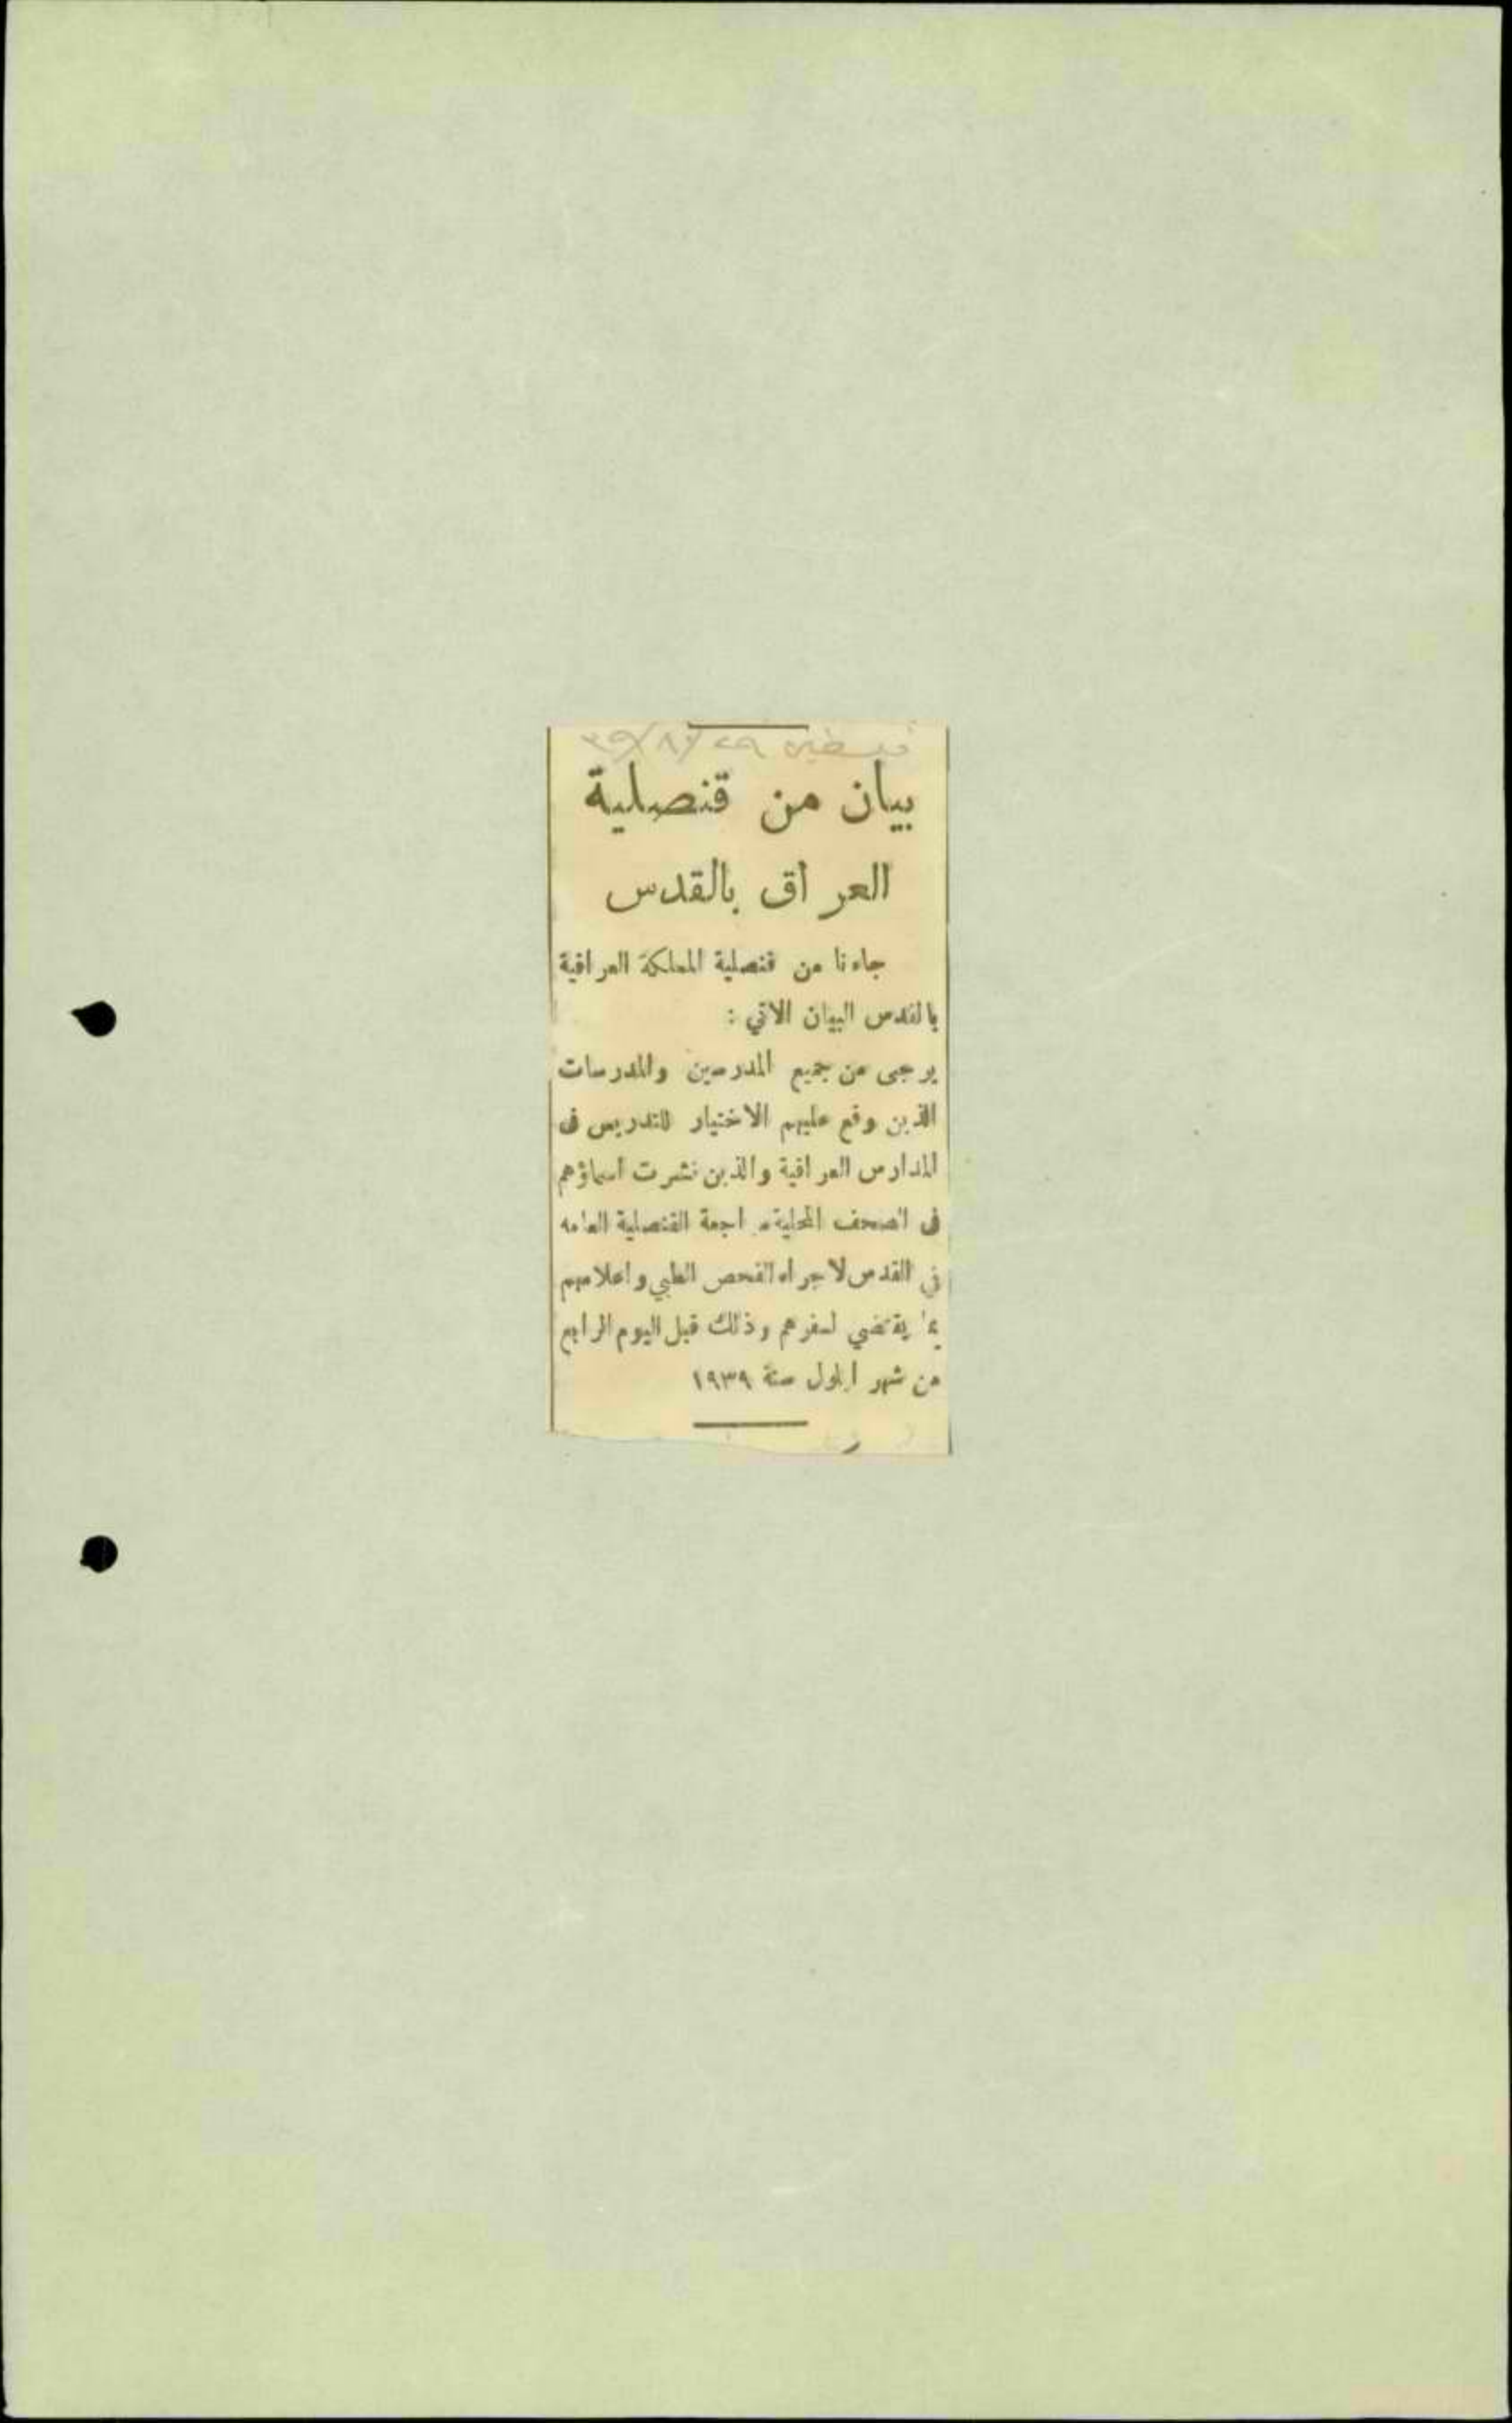 فلسطين ٢٩/٨/٣٩
بيان من قنصلية
العراق بالقدس
جاءنا من قنصلية المملكة العراقية
بالقدس البيان الاتي :
يرجى من جميع المدرسين والمدرسات
الذين وقع عليهم الاختيار للتدريس في
المدارس العراقية والذين نشرت اسماؤهم
في الصحف المحلية مراجعة القنصلية العامه
في القدس لاجراء الفحص الطبي واعلامهم
بما يقتضي لسفرهم وذلك قبل اليوم الرابع
من شهر ايلول سنة ١٩٣٩